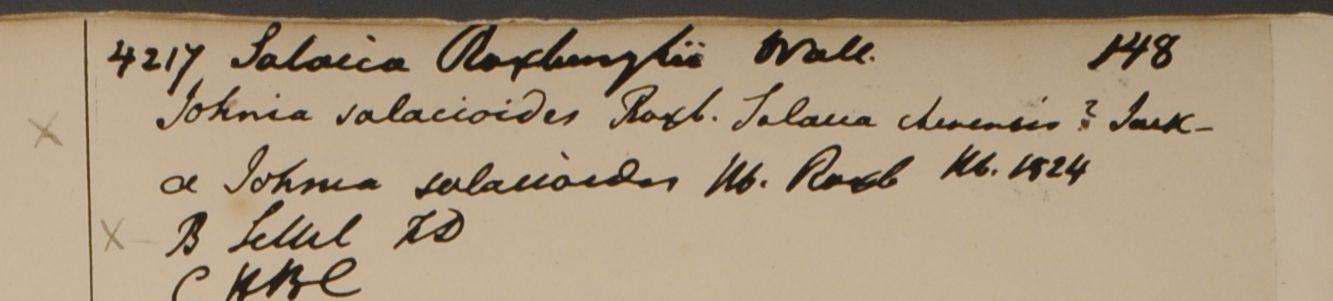 4217 Salacia Roxburghii Wall. 148
Johnia salacioides Roxb. Salacia chinensis? Jack-
α Johnia salacioides Hb. Roxb Hb. 1824
x B Sillet FD
C HBC